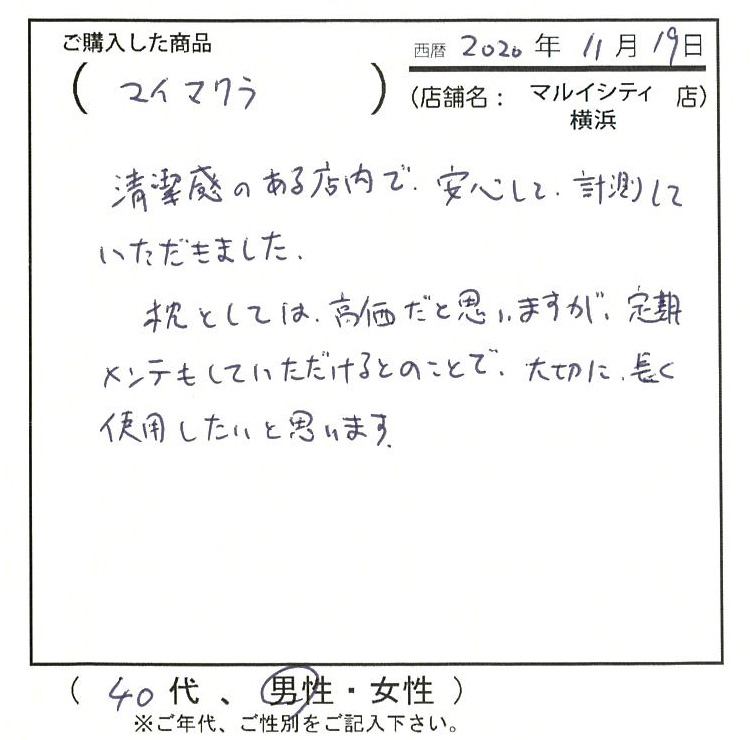 ご購入した商品
西暦 2020 年 11 月 19 日
( マイマクラ )
(店舗名： マルイシティ横浜 店)
清潔感のある店内で、安心して、計測して
いただきました。
枕としては、高価だと思いますが、定期
メンテもしていただけるとのことで、大切に、長く
使用したいと思います。
( 40 代 、 男性・女性 )
※ご年代、ご性別をご記入下さい。